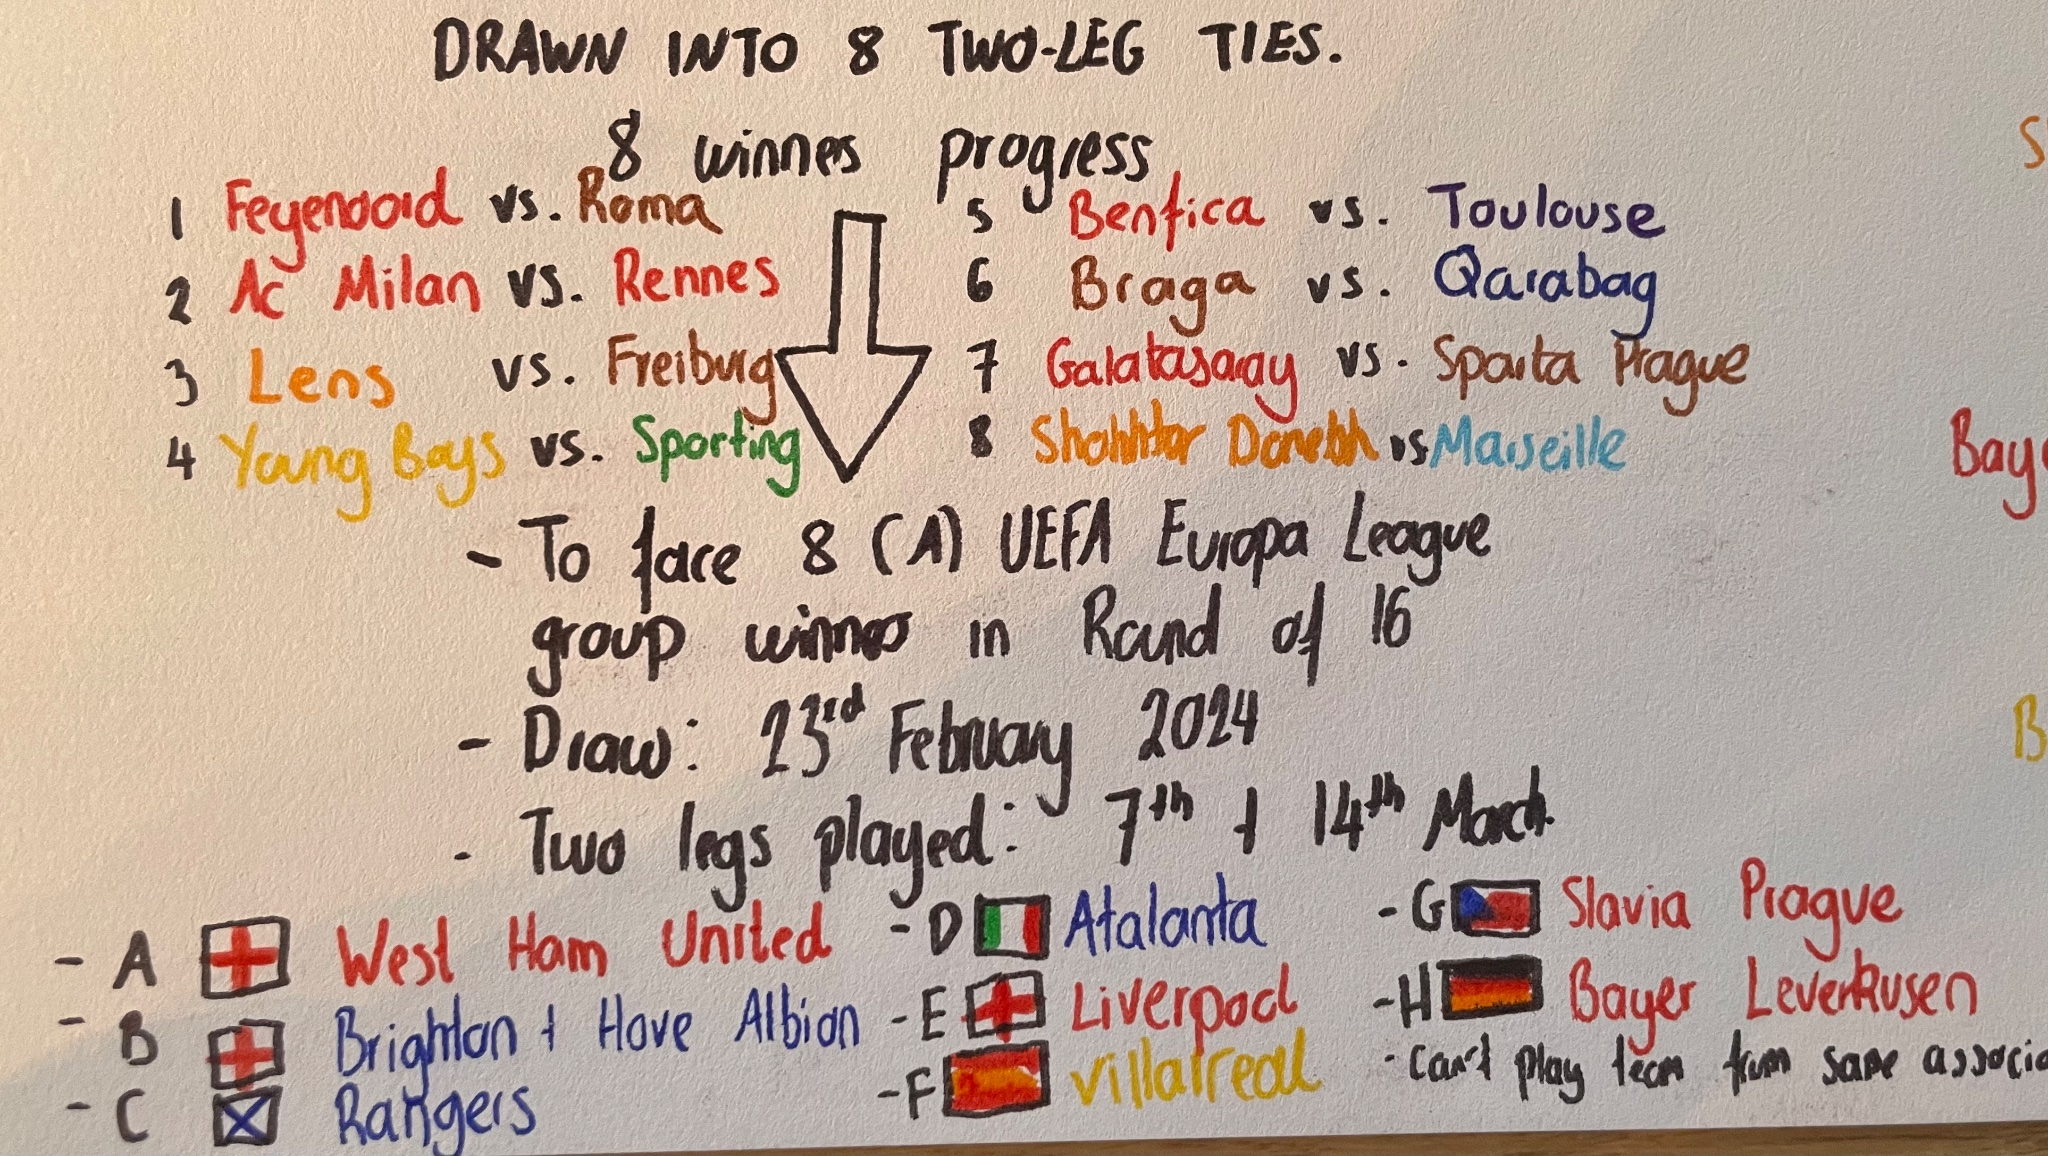 DRAWN INTO 8 TWO-LEG TIES.
8 winnes progress
1 Feyenoord vs. Roma
2 Ac Milan vs. Rennes
3 Lens vs. Freiburg
4 Young Boys vs. Sporting
5 Benfica vs. Toulouse
6 Braga vs. Qarabag
7 Galatasaray vs. Sparta Prague
8 Shahktar vs Marseille
- To face 8 (A) UEFA Europa League
group winnes in Round of 16
- Draw: 23rd February 2024
- Two legs played: 7th + 14th March.
- A West Ham United
- B Brighton + Hove Albion
- C Rangers
- D Atalanta
- E Liverpool
- F Villarreal
- G Slavia Prague
- H Bayer Leverkusen
- Can't play team from same associa
S
Baye
B